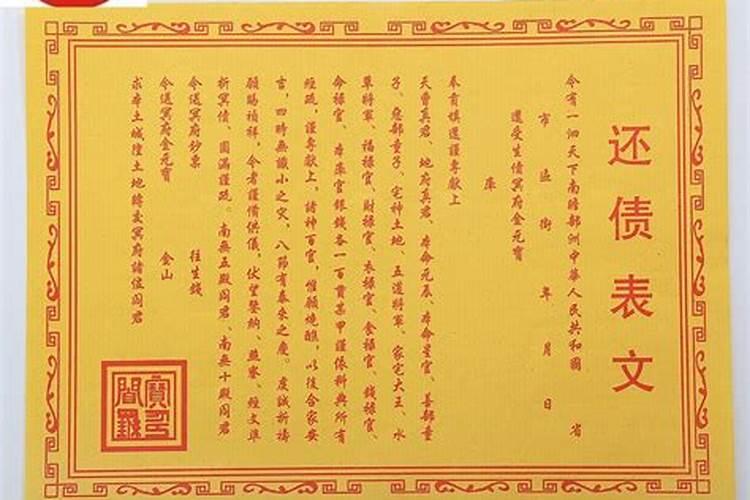 还债表文
今有一泗天下南瞻部洲中華人民共和國 省
市 區 街 年 月 日
還受生債冥府金元寶
庫
奉育填還謹專献上
天曹真君、地府真君、本命元辰、本命星官、善部童
子、惡部童子、宅神土地、五道將軍、家宅大王、水
草將軍、福禄官、財禄官、衣禄官、食禄官、錢禄官、
命禄官、本庫官銀錢各一百貫某甲謹依科典所有
經疏，謹專献上，諸神百官，惟願燒醮，以後合家安
吉，四時無識小之灾，八節有泰来之慶。虔誠祈禱
願賜禎祥，今者謹備供儀，伏望鑒納、燕寮、經文準
折冥債、圓滿謹疏。南無五殿阎君、南無十殿阎君
今送冥府鈔票 往生錢
今送冥府金元寶 金山
求本土城隍土地轉交冥府諸位阎君